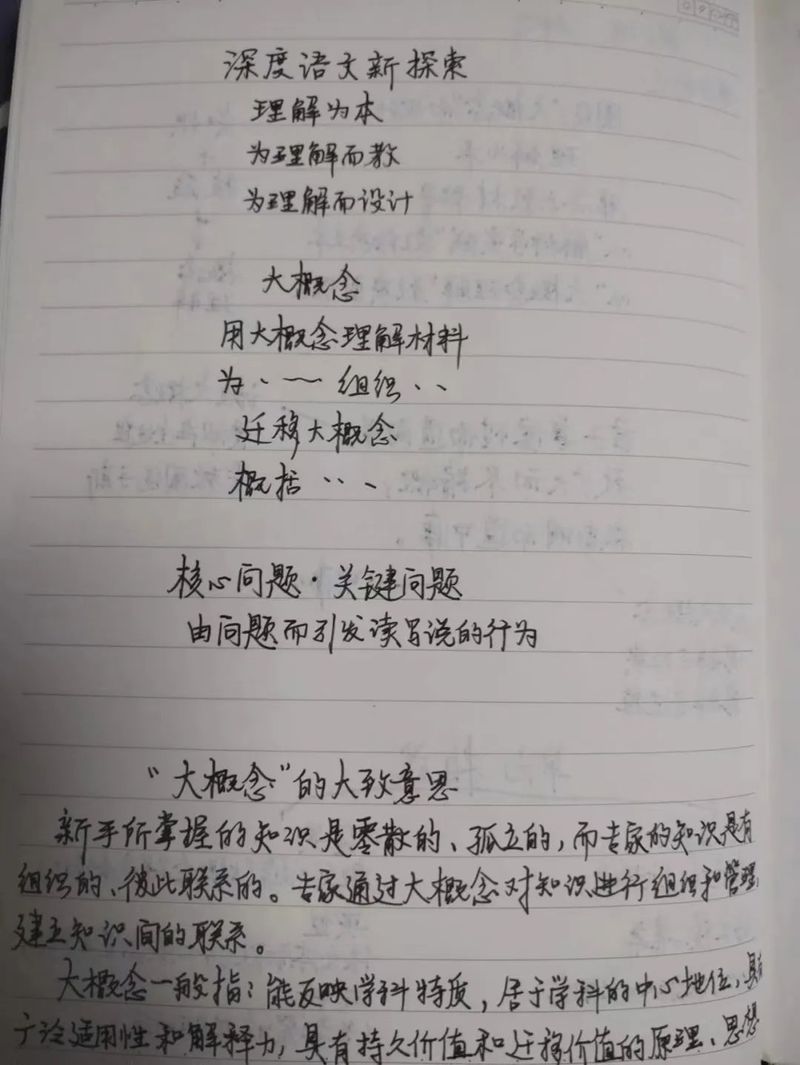 深度语文新探索
理解为本
为理解而教
为理解而设计
大概念
用大概念理解材料
为··一组织··
迁移大概念
概括···
核心问题·关键问题
由问题而引发读写说的行为
“大概念”的大致意思
新手所掌握的知识是零散的、孤立的,而专家的知识是有
组织的、彼此联系的。专家通过大概念对知识进行组织和管理
建立知识间的联系。
大概念一般指:能反映学科特质,居于学科的中心地位,具有
广泛适用性和解释力,具有持久价值和迁移价值的原理、思想